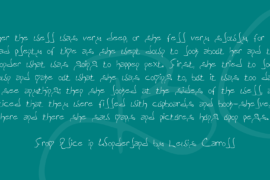 er the well was very deep, or she fell very slowly, for
ad plenty of time as she went down to look about her and t
onder what was going to happen next. First, she tried to loo
and make out what she was coming to, but it was too da
see anything; then she looked at the sides of the well a
ticed that they were filled with cupboards and book-shelve
here and there she saw maps and pictures hung upon pegs
From Alice in Wonderland by Lewis Carroll